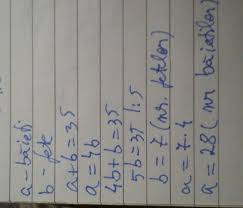 a - băieți
b - fete
a+b=35
a=4b
4b+b=35
5b=35 |:5
b=7 (nr. fetelor)
a=7·4
a=28 (nr băieților)